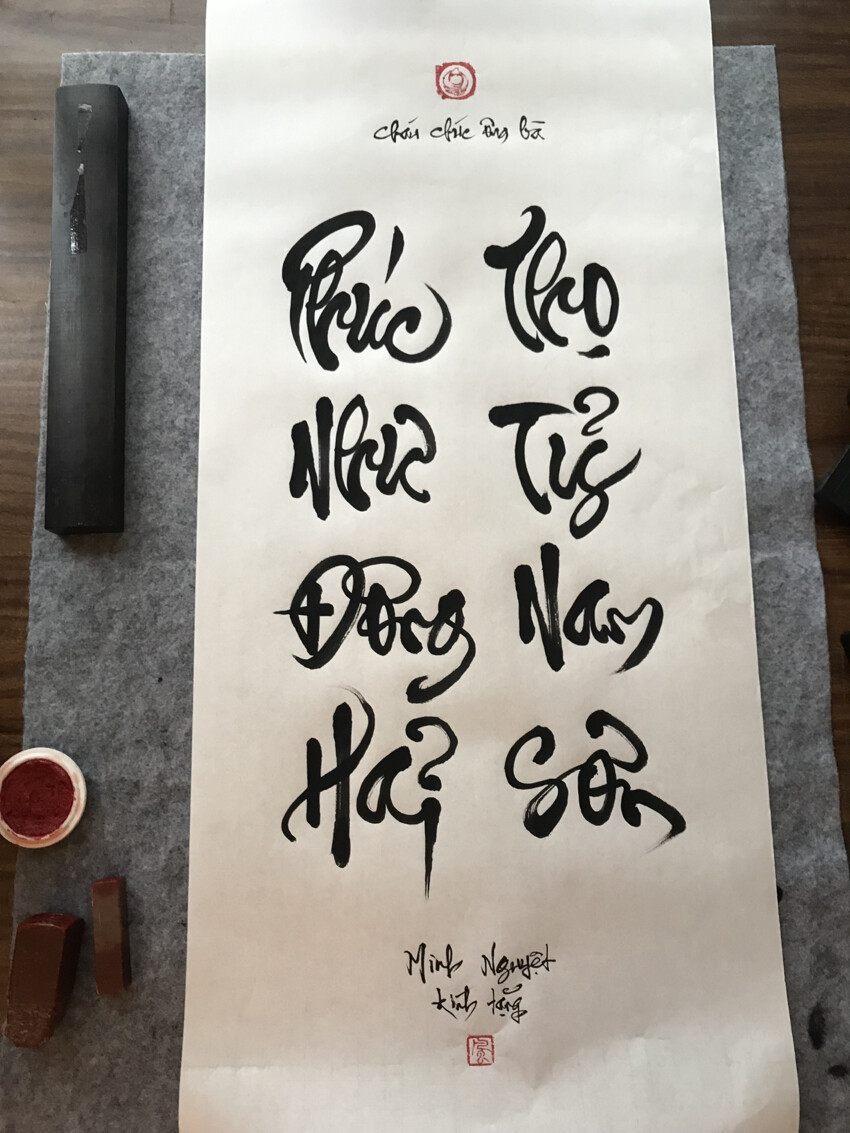 cháu chúc ông bà
Phúc
Như
Đông
Hải
Thọ
Tỷ
Nam
Sơn
Minh Nguyệt
kính tặng